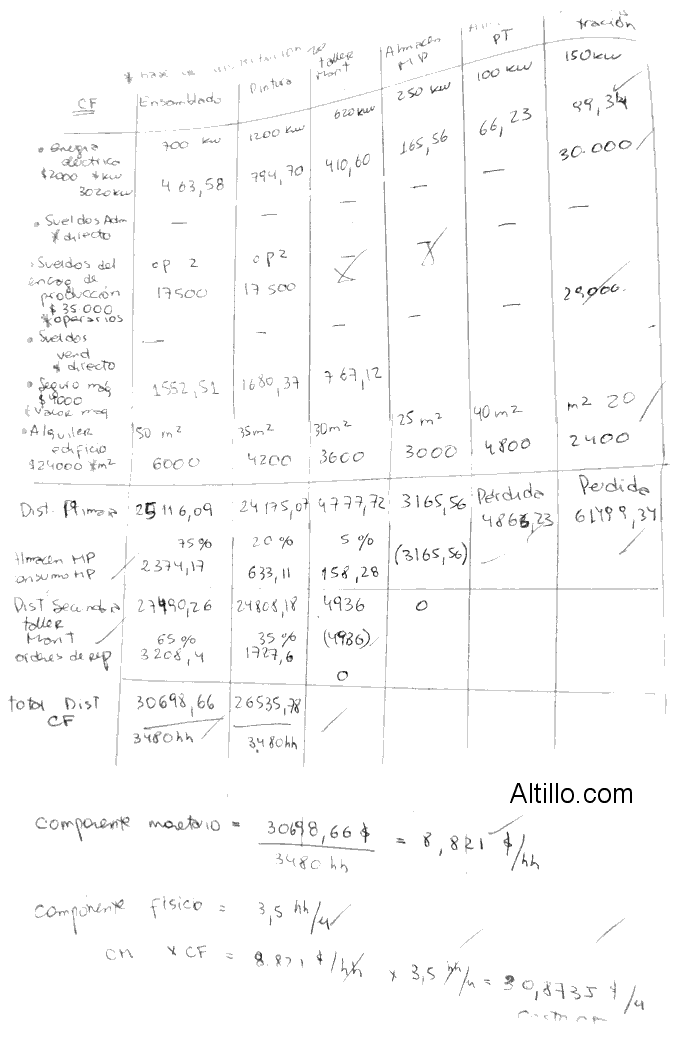 CF Ensamblado Pintura Taller Mant Almacén MP PT tración
• Energía eléctrica $2000 *kw 3020kw
700 kw 1200 kw 620kw 250 kw 100 kw 150kw
463,58 794,70 410,60 165,56 66,23 99,34
• Sueldos Adm * directo
— — — — — 30.000
• Sueldos del encag de producción $35.000 *operarios
op 2 op 2
17500 17 500
— — — — —
• Sueldos vend * directo
— — — — — 29,000
• Seguro maq $4000 *valor maq
1552,51 1680,37 767,12
• Alquiler edificio $24000 *m²
50 m² 35m² 30m² 25 m² 40 m² m² 20
6000 4200 3600 3000 4800 2400
Dist. Primaria 25116,09 24175,07 4777,72 3165,56 Perdida 4866,23 Perdida 61499,34
75% 20% 5%
Almacen MP consumo MP 2374,17 633,11 158,28 (3165,56)
Dist Secundria 27490,26 24808,18 4936 0
taller Mant 65% 35% (4936)
ordenes de rep 3208,4 1727,6
0
total Dist CF 30698,66 26535,78
3480hh 3480hh
Altillo.com
componente monetario = 30698,66 $ / 3480 hh = 8,821 $/hh
componente físico = 3,5 hh/u
CM * CF = 8.821 $/hh * 3,5 hh/u = 30,8735 $/u